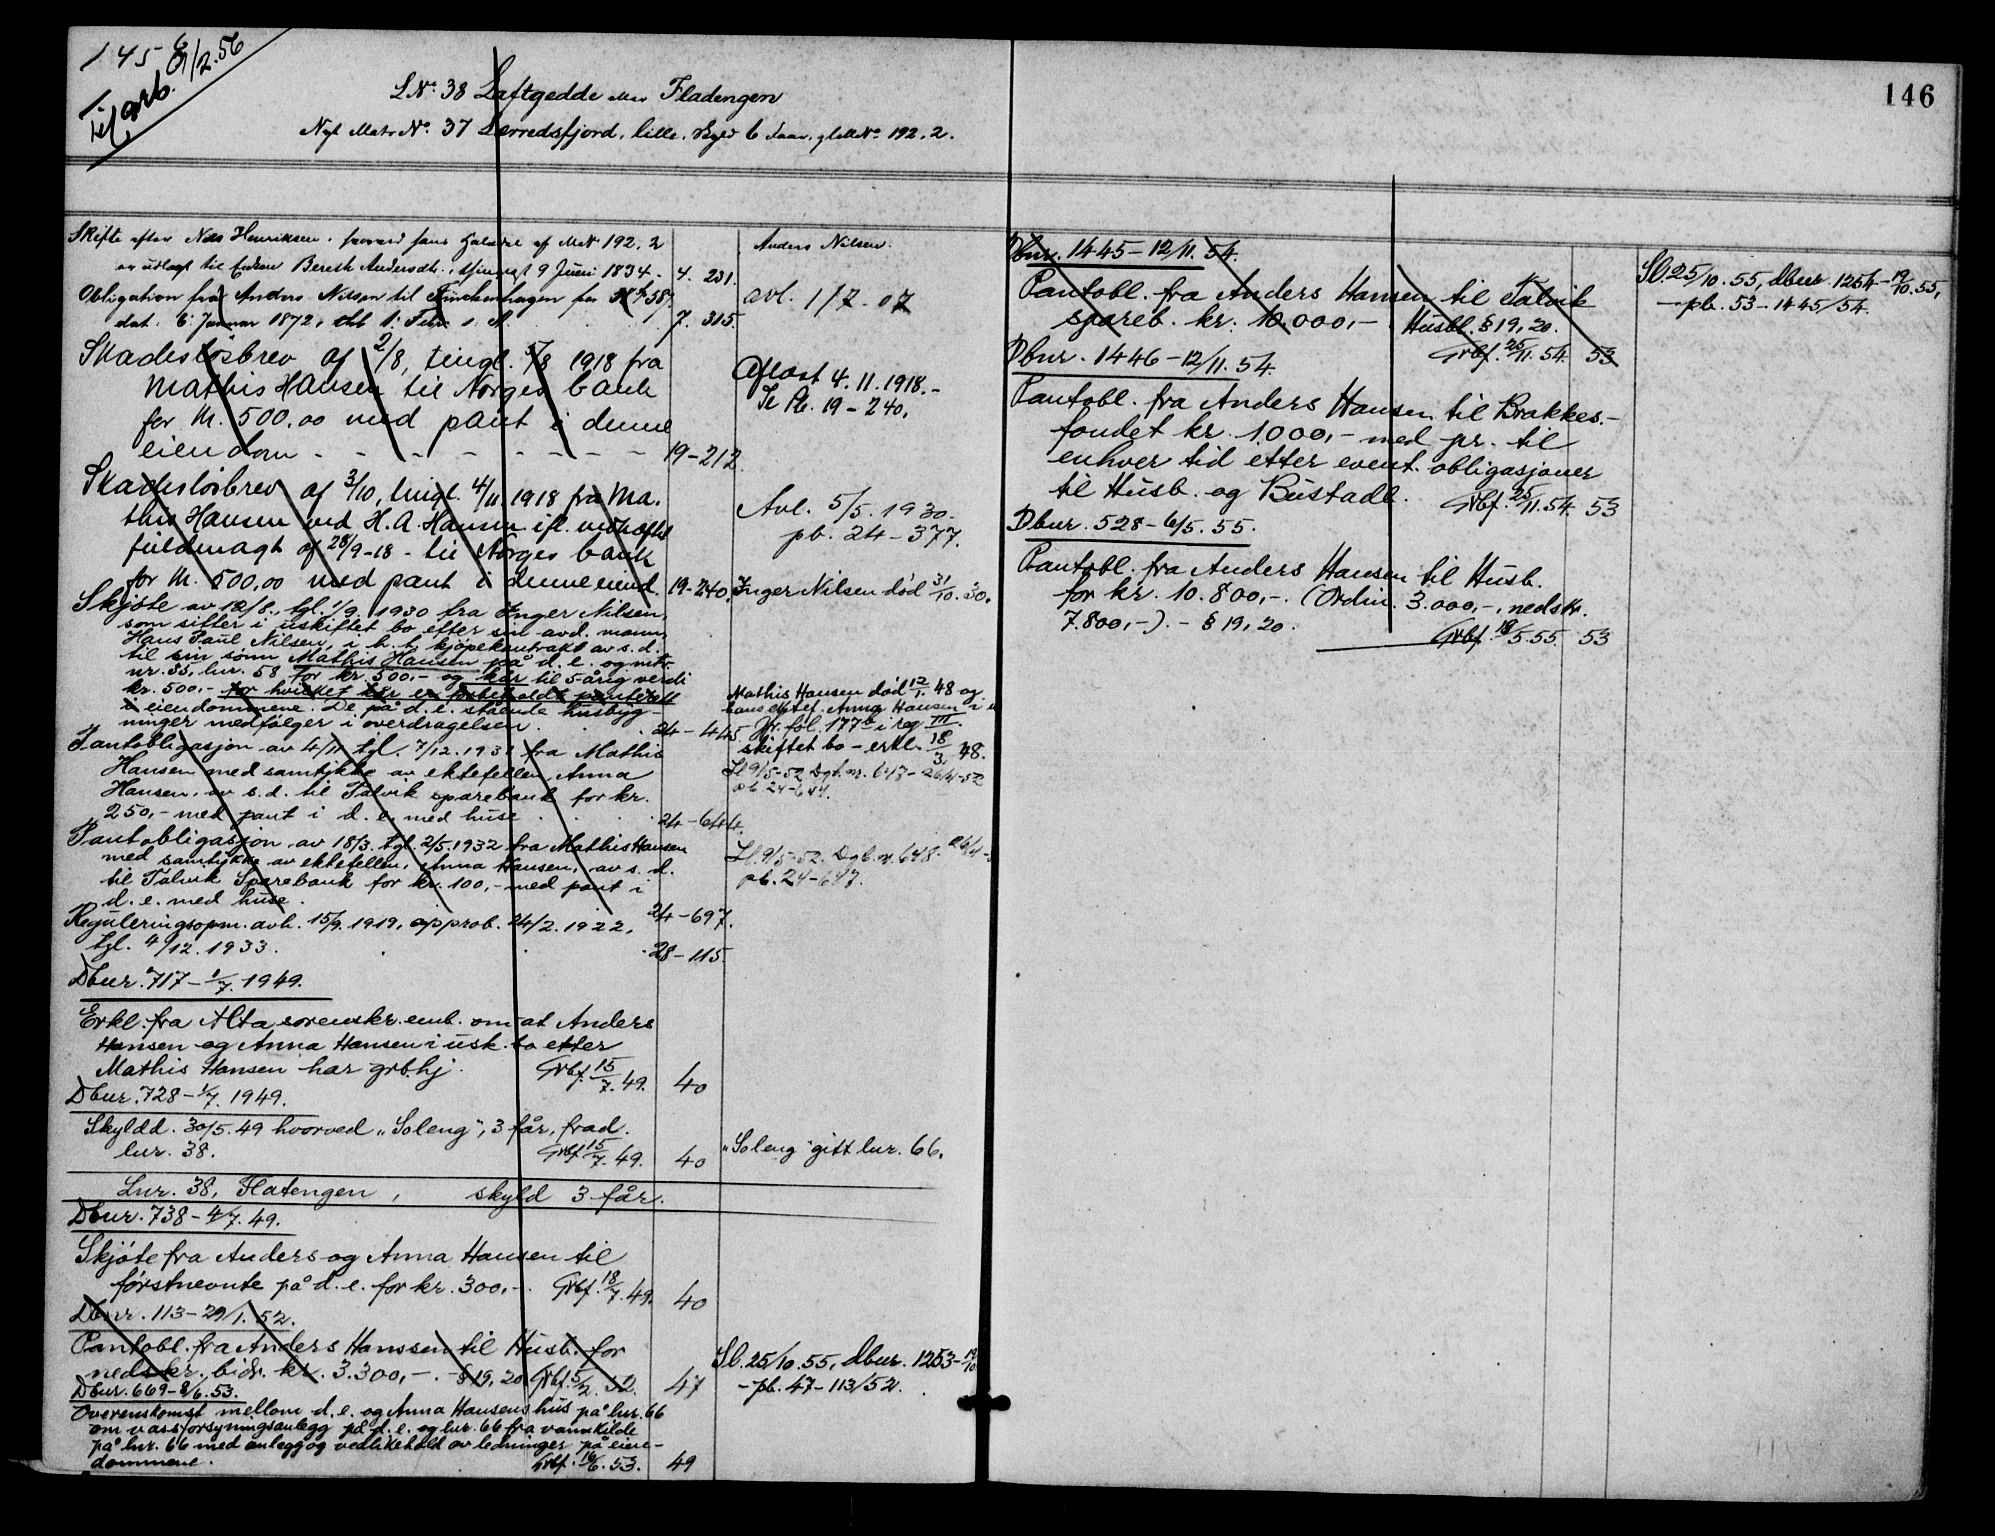 145
6/2.56
146
LNo 38 Laftgedde Fladengen
Nyt Matr No. 37 Lerredsfjord, lille. Skyld 6 192.2.
Skifte efter Nils Henriksen. af MNo 192.2
er udlagt til Enken Bereth Andersdtr. 9 Juni 1834. 4. 231.
Anders Nilsen.
Obligation fra Anders Nilsen til Finckenhagen for
dat. 6 Januar 1872, 1. Febr s. A. 7. 315.
avl. 1/7-07
Skadesløsbrev af 2/8, tingl. 5/8 1918 fra
Mathis Hansen til Norges bank
for kr. 500.00 med pant i denne
eiendom - - - - - - - 19-212.
Aflæst 4.11.1918.-
Se Pb. 19-240.
Skadesløsbrev af 3/10, tingl. 4/11 1918 fra Ma-
this Hansen ved H.A. Hansen ifl. vedheftet
fuldmagt af 28/9-18 - til Norges bank
for kr. 500,00 med pant i denne eiend. 19-240.
Avl. 5/5. 1930.
pb. 24-377.
Inger Nilsen død 31/10.30.
Skjøte av 12/8, tgl. 1/9 1930 fra Inger Nilsen,
som sitter i uskiftet bo efter sin avd. mann,
Hans Paul Nilsen, i h. t. kjøpekontrakt av s.d.
til sin sønn Mathis Hansen på d.e. og mtr.
nr. 35, lnr. 58 for kr. 500,- og kår til 5årig verdi
kr. 500,- for hvilket kår er forbeholdt panterett
i eiendommene. De på d.e. stående husbyg-
ninger medfølger i overdragelsen. 24-445.
Mathis Hansen død 12/1.48 og
hans ektef. Anna Hansen i u
Jfr. fol. 177b i reg III.
skiftet bo - erkl. 18/3.48.
Pantobligasjon av 4/11 tgl. 7/12.1931 fra Mathis
Hansen med samtykke av ektefellen, Anna
Hansen, av s.d. til Talvik sparebank for kr.
250,- med pant i d.e. med huse. 24-644.
Sl 9/5-52 Dgb.nr. 647-26/4-52
pb. 24-644.
Pantobligasjon av 18/3. tgl. 2/5.1932 fra Mathis Hansen
med samtykke av ektefellen, Anna Hansen, av s.d.
til Talvik Sparebank for kr. 100,- med pant i
d.e. med huse. 24-697.
Sl. 9/5-52. Dgb.nr. 648. 26/4-5
pb. 24-647.
Reguleringsopm. avh. 15/9.1919, approb. 24/2.1922,
tgl. 4/12.1933. 28-115.
Dbnr. 717-1/7.1949.
Erkl. fra Alta sorenskr.emb. om at Anders
Hansen og Anna Hansen i usk. bo etter
Mathis Hansen har grb.hj. Grbf. 15/7.49. 40
Dbnr. 728-1/7.1949.
Skyldd. 30/5.49 hvorved "Soleng", 3 får, frad.
lnr. 38. Grbf 15/7.49. 40
"Soleng" gitt lnr. 66.
Lnr. 38, Flatengen, skyld 3 får.
Dbnr. 738-4/7.49.
Skjøte fra Anders og Anna Hansen til
førstnevnte på d.e. for kr. 300,-. Grbf. 18/7.49. 40
Dbnr. 113-29/1.52.
Pantobl. fra Anders Hanssen til Husb. for
nedskr. bidr. kr. 3.300,-. §19,20 Grbf. 5/2.52. 47
Sl. 25/10.55, dbnr. 1253-19/10
- pb. 47-113/52.
Dbnr. 669-8/6.53.
Overenskomst mellom d.e. og Anna Hansens hus på lnr. 66
om vassforsyningsanlegg på d.e. og lnr. 66 fra vannkilde
på lnr. 66 med anlegg og vedlikehold av ledninger på eien-
dommene. Grbf. 16/6.53. 49
Dbnr. 1445-12/11.54.
Pantobl. fra Anders Hansen til Talvik
spareb. kr. 10.000,- Husbl. §19,20.
Grbf. 25/11.54. 53
Sl. 25/10.55, dbnr 1254-19/10.55,
- pb. 53-1445/54.
Dbnr. 1446-12/11.54.
Pantobl. fra Anders Hansen til Brakkes-
fondet kr. 1.000,- med pr. til
enhver tid etter event. obligasjoner
til Husb. og Bustadb. Grbf. 25/11.54. 53
Dbnr. 528-6/5.55.
Pantobl. fra Anders Hansen til Husb.
for kr. 10.800,-. (Ordin. 3.000,-, nedskr.
7.800,-). - §19,20.
Grbf. 18/5.55. 53